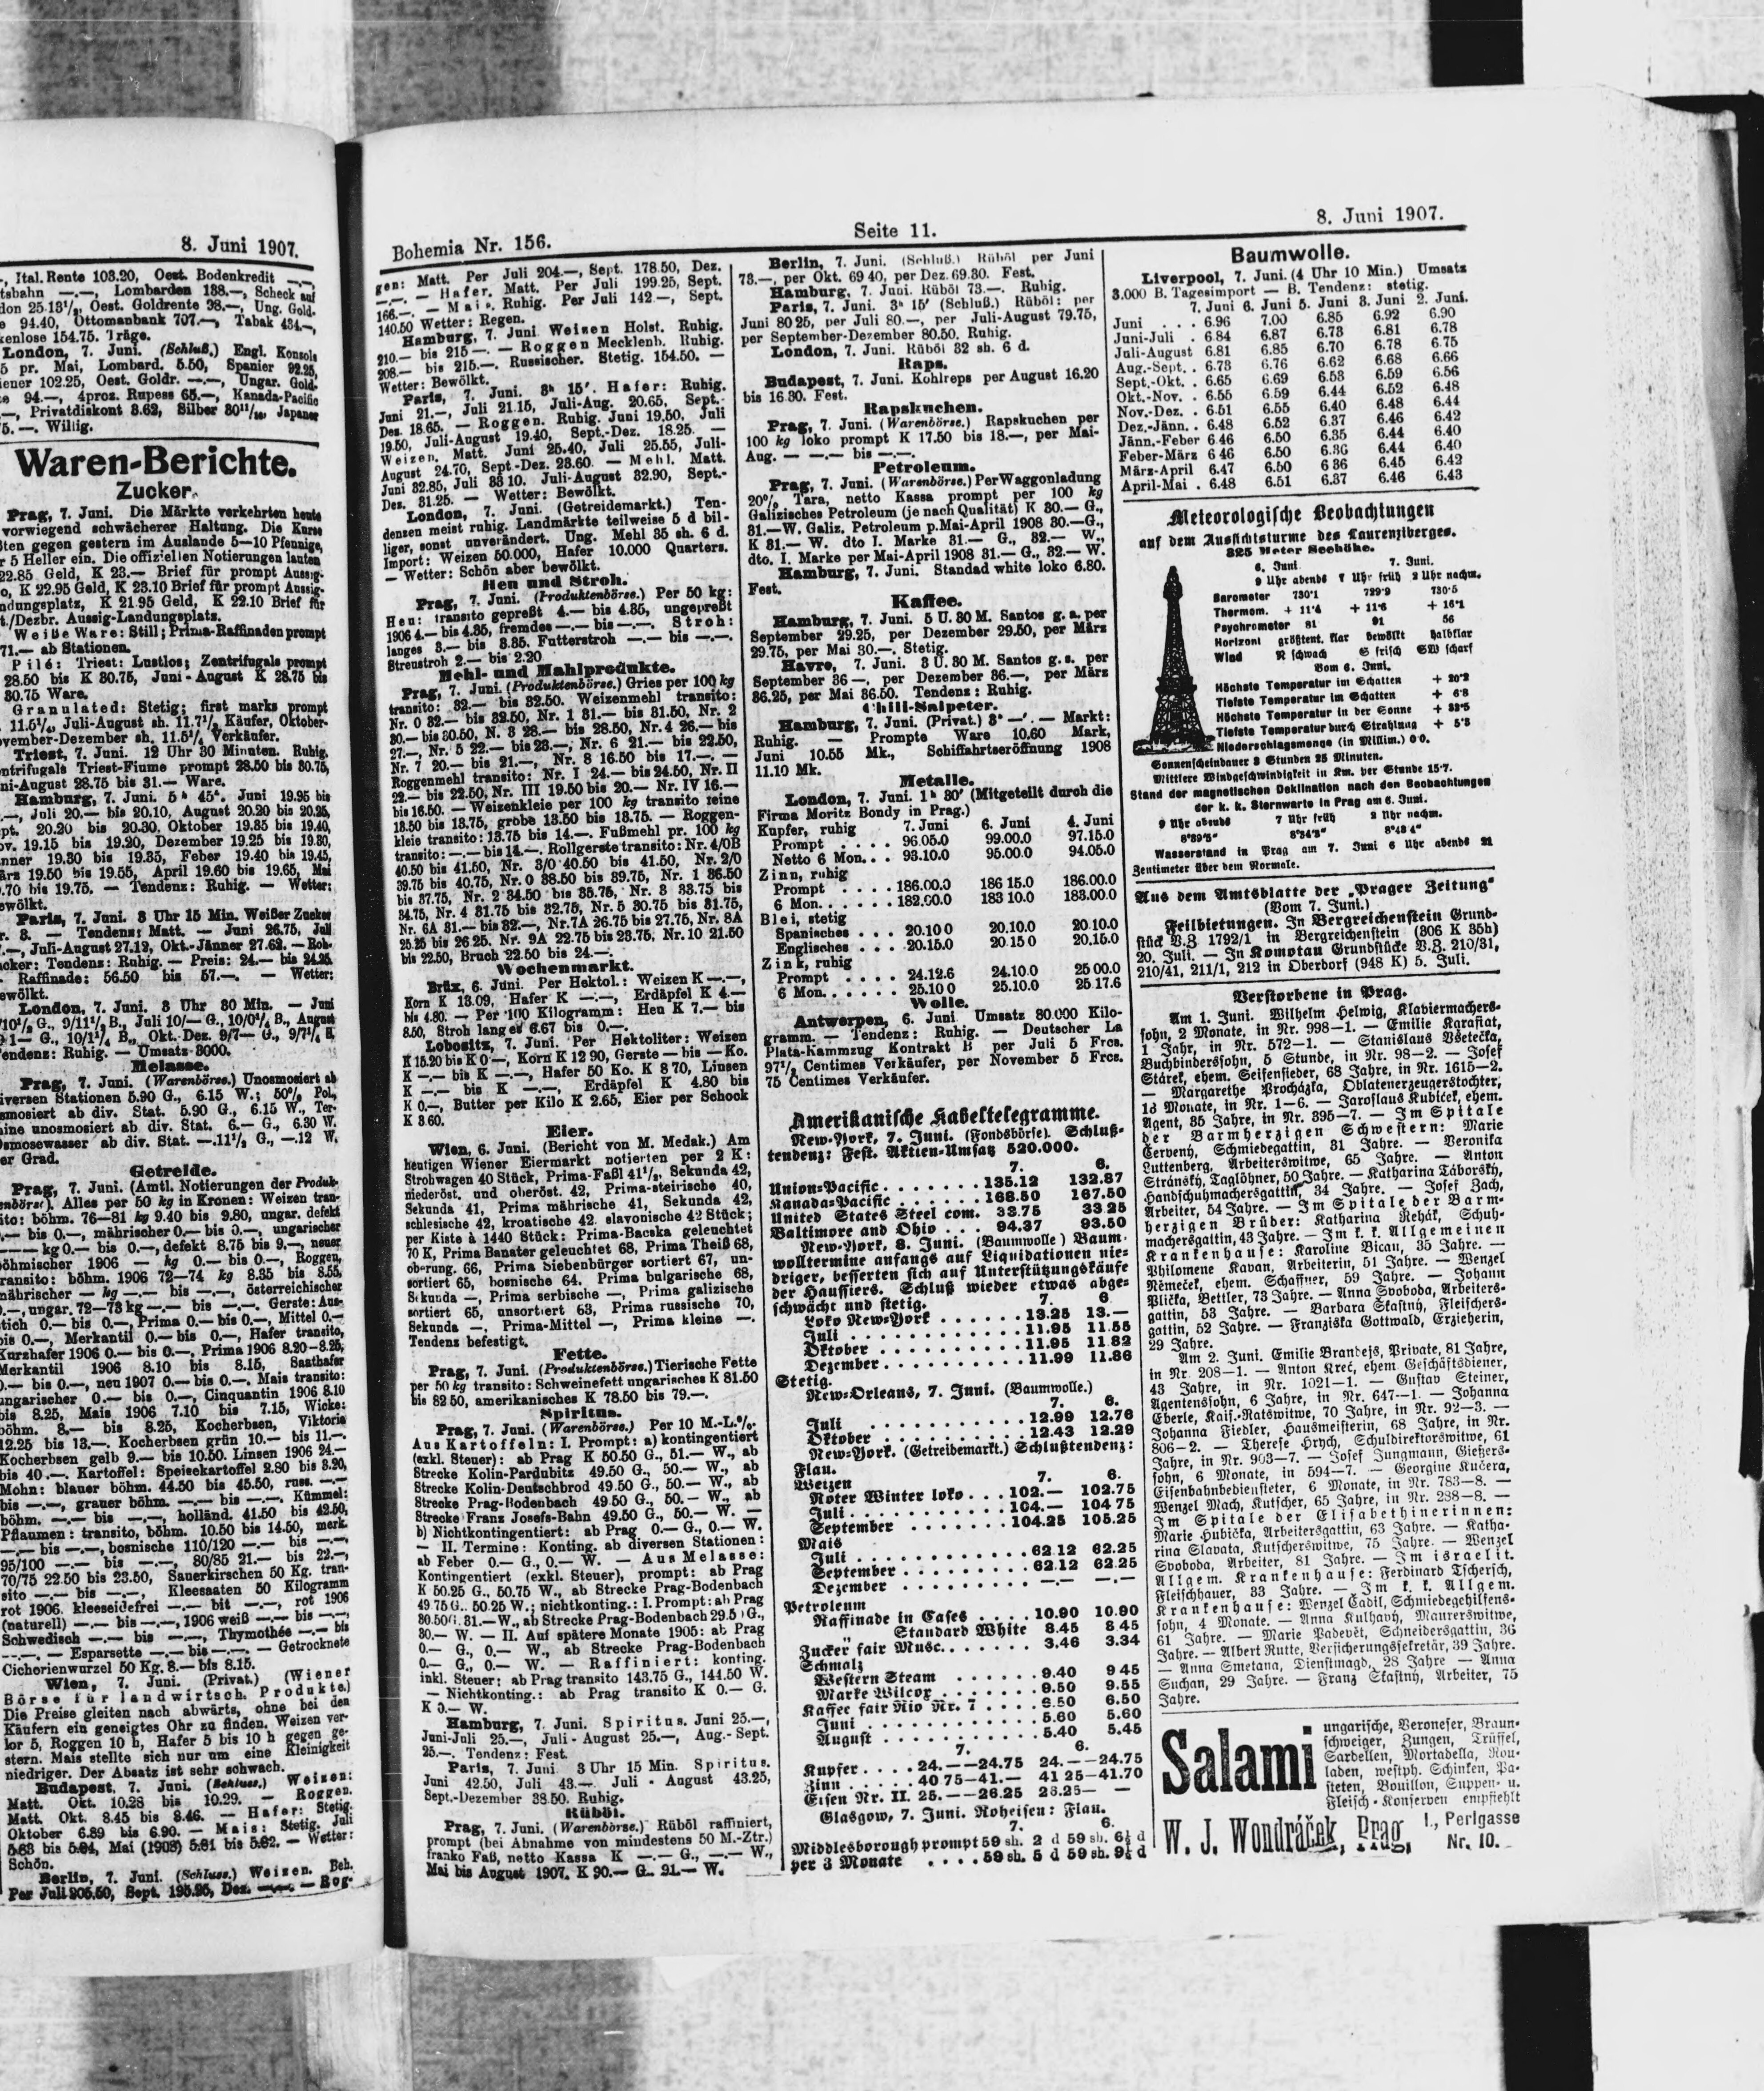 8. Juni 1907.
Ital. Rente 103.20, Oest. Bodenkredit —.—,
Lombarden 138.—, Scheck auf
Oest. Goldrente 98.—, Ung. Gold-
94.40, Ottomanbank 707.—, Tabak 434.—,
154.75. Träge.
London, 7. Juni. (Schluß.) Engl. Konsols
pr. Mai, Lombard. 5.50, Spanier 92.25,
102.25, Oest. Goldr. —.—, Ungar. Gold-
94.—, 4proz. Rupees 65.—, Kanada-Pacific
Privatdiskont 3.62, Silber 30 11/16, Japaner
Willig.
Waren-Berichte.
Zucker.
Prag, 7. Juni. Die Märkte verkehrten heute
vorwiegend schwächerer Haltung. Die Kurse
gegen gestern im Auslande 5—10 Pfennige,
5 Heller ein. Die offiziellen Notierungen lauten
22.85 Geld, K 23.— Brief für prompt Aussig-
K 22.95 Geld, K 23.10 Brief für prompt Aussig-
K 21.95 Geld, K 22.10 Brief für
Aussig-Landungsplatz.
Weiße Ware: Still; Prima-Raffinaden prompt
71.— ab Stationen.
Pilé: Triest: Lustlos; Zentrifugals prompt
28.50 bis K 30.75, Juni-August K 28.75 bis
30.75 Ware.
Granulated: Stetig; first marks prompt
11.5¼, Juli-August sh. 11.7½ Käufer, Oktober-
Dezember sh. 11.5¼ Verkäufer.
Triest, 7. Juni. 12 Uhr 30 Minuten. Ruhig.
Triest-Fiume prompt 28.50 bis 30.75,
August 28.75 bis 31.— Ware.
Hamburg, 7. Juni. 5 h 45'. Juni 19.95 bis
Juli 20.— bis 20.10, August 20.20 bis 20.25,
20.20 bis 20.30. Oktober 19.35 bis 19.40,
19.15 bis 19.20, Dezember 19.25 bis 19.30,
19.30 bis 19.35, Feber 19.40 bis 19.45,
19.50 bis 19.55, April 19.60 bis 19.65, Mai
bis 19.75. — Tendenz: Ruhig. — Wetter:
Paris, 7. Juni. 3 Uhr 15 Min. Weißer Zucker
3. — Tendenz: Matt. — Juni 26.75, Juli
Juli-August 27.12, Okt.-Jänner 27.62. — Roh-
Tendenz: Ruhig. — Preis: 24.— bis 24.25.
Raffinade: 56.50 bis 57.—. — Wetter:
London, 7. Juni. 3 Uhr 30 Min. — Juni
Tendenz: Ruhig. — Umsatz 3000.
Melasse.
Prag, 7. Juni. (Warenbörse.) Unosmosiert ab
Stationen 5.90 G., 6.15 W.; 50% Pol.,
ab div. Stat. 5.90 G., 6.15 W., Ter-
unosmosiert ab div. Stat. 6.— G., 6.30 W.
Osmosewasser ab div. Stat. —.11½ G., —.12 W.
Grad.
Getreide.
Prag, 7. Juni. (Amtl. Notierungen der Produk-
Alles per 50 kg in Kronen: Weizen tran-
böhm. 76—81 kg 9.40 bis 9.80, ungar. defekt
bis 0.—, mährischer 0.— bis 0.—, ungarischer
kg 0.— bis 0.—, defekt 8.75 bis 9.—, neuer
1906 — kg 0.— bis 0.—, Roggen,
böhm. 1906 72—74 kg 8.35 bis 8.55,
mährischer — kg —.— bis —.—, österreichischer
ungar. 72—73 kg —.— bis —.—. Gerste: Aus-
0.— bis 0.—, Prima 0.— bis 0.—, Mittel 0.—
bis 0.—, Merkantil 0.— bis 0.—, Hafer transito,
Kurzhafer 1906 0.— bis 0.—, Prima 1906 8.20—8.25,
Merkantil 1906 8.10 bis 8.15, Saathafer
bis 0.—, neu 1907 0.— bis 0.—. Mais transito:
ungarischer 0.— bis 0.—, Cinquantin 1906 8.10
bis 8.25, Mais 1906 7.10 bis 7.15, Wicke:
böhm. 8.— bis 8.25, Kocherbsen, Viktoria
12.25 bis 13.—. Kocherbsen grün 10.— bis 11.—.
Kocherbsen gelb 9.— bis 10.50. Linsen 1906 24.—
bis 40.—. Kartoffel: Speisekartoffel 2.80 bis 3.20,
Mohn: blauer böhm. 44.50 bis 45.50, russ. —.—
bis —.—, grauer böhm. —.— bis —.—. Kümmel:
böhm. —.— bis —.—, holländ. 41.50 bis 42.50,
Pflaumen: transito, böhm. 10.50 bis 14.50, merk.
—.— bis —.—, bosnische 110/120 —.— bis —.—,
95/100 —.— bis —.—, 80/85 21.— bis 22.—,
70/75 22.50 bis 23.50, Sauerkirschen 50 Kg. tran-
sito —.— bis —.—, Kleesaaten 50 Kilogramm
rot 1906. kleeseidefrei —.— bit —.—, rot 1906
(naturell) —.— bis —.—, 1906 weiß —.— bis —.—,
Schwedisch —.— bis —.—, Thymothée —.— bis
—.—. — Esparsette —.— bis —.—. — Getrocknete
Cichorienwurzel 50 Kg. 8.— bis 8.15.
Wien, 7. Juni. (Privat.) (Wiener
Börse für landwirtsch. Produkte.)
Die Preise gleiten nach abwärts, ohne bei den
Käufern ein geneigtes Ohr zu finden. Weizen ver-
lor 5, Roggen 10 h, Hafer 5 bis 10 h gegen ge-
stern. Mais stellte sich nur um eine Kleinigkeit
niedriger. Der Absatz ist sehr schwach.
Budapest, 7. Juni. (Schluss.) Weizen:
Matt. Okt. 10.28 bis 10.29. — Roggen.
Matt. Okt. 8.45 bis 8.46. — Hafer: Stetig.
Oktober 6.89 bis 6.90. — Mais: Stetig. Juli
5.63 bis 5.64, Mai (1908) 5.61 bis 5.62. — Wetter:
Schön.
Berlin, 7. Juni. (Schluss.) Weizen. Beh.
Per Juli 205.50, Sept. 195.25, Dez. —.—. — Rog-
Bohemia Nr. 156.
Seite 11.
8. Juni 1907.
gen: Matt. Per Juli 204.—, Sept. 178.50, Dez.
—.—. — Hafer. Matt. Per Juli 199.25, Sept.
166.—. — Mais. Ruhig. Per Juli 142.—, Sept.
140.50 Wetter: Regen.
Hamburg, 7. Juni Weizen Holst. Ruhig.
210.— bis 215—. — Roggen Mecklenb. Ruhig.
208.— bis 215.—. Russischer. Stetig. 154.50. —
Wetter: Bewölkt.
Paris, 7. Juni. 3h 15'. Hafer: Ruhig.
Juni 21.—, Juli 21.15, Juli-Aug. 20.65, Sept.-
Dez. 18.65. — Roggen. Ruhig. Juni 19.50, Juli
19.50, Juli-August 19.40, Sept.-Dez. 18.25. —
Weizen. Matt. Juni 25.40, Juli 25.55, Juli-
August 24.70, Sept.-Dez. 23.60. — Mehl. Matt.
Juni 32.85, Juli 33 10. Juli-August 32.90, Sept.-
Dez. 31.25. — Wetter: Bewölkt.
London, 7. Juni. (Getreidemarkt.) Ten-
denzen meist ruhig. Landmärkte teilweise 5 d bil-
liger, sonst unverändert. Ung. Mehl 35 sh. 6 d.
Import: Weizen 50.000, Hafer 10.000 Quarters.
— Wetter: Schön aber bewölkt.
Heu und Stroh.
Prag, 7. Juni. (Produktenbörse.) Per 50 kg:
Heu: transito gepreßt 4.— bis 4.35, ungepreßt
1906 4.— bis 4.35, fremdes —.— bis —.—. Stroh:
langes 3.— bis 3.35. Futterstroh —.— bis —.—.
Streustroh 2.— bis 2.20
Mehl- und Mahlprodukte.
Prag, 7. Juni. (Produktenbörse.) Gries per 100 kg
transito: 32.— bis 32.50. Weizenmehl transito:
Nr. 0 32.— bis 32.50, Nr. 1 31.— bis 31.50, Nr. 2
30.— bis 30.50, N. 3 28.— bis 28.50, Nr. 4 26.— bis
27.—, Nr. 5 22.— bis 23.—, Nr. 6 21.— bis 22.50,
Nr. 7 20.— bis 21.—, Nr. 8 16.50 bis 17.—. —
Roggenmehl transito: Nr. I 24.— bis 24.50, Nr. II
22.— bis 22.50, Nr. III 19.50 bis 20.— Nr. IV 16.—
bis 16.50. — Weizenkleie per 100 kg transito feine
13.50 bis 13.75, grobe 13.50 bis 13.75. — Roggen-
kleie transito: 13.75 bis 14.—. Fußmehl pr. 100 kg
transito: —.— bis 14.—. Rollgerste transito: Nr. 4/0B
40.50 bis 41.50, Nr. 3/0 40.50 bis 41.50, Nr. 2/0
39.75 bis 40.75, Nr. 0 38.50 bis 39.75, Nr. 1 36.50
bis 37.75, Nr. 2 34.50 bis 35.75, Nr. 3 33.75 bis
34.75, Nr. 4 31.75 bis 32.75, Nr. 5 30.75 bis 31.75,
Nr. 6A 31.— bis 32.—, Nr. 7A 26.75 bis 27.75, Nr. 8A
25.25 bis 26 25. Nr. 9A 22.75 bis 23.75, Nr. 10 21.50
bis 22.50, Bruch 22.50 bis 24.—.
Wochenmarkt.
Brüx, 6. Juni. Per Hektol.: Weizen K —.—,
Korn K 13.09, Hafer K —.—, Erdäpfel K 4.—
bis 4.80. — Per 100 Kilogramm: Heu K 7.— bis
8.50, Stroh langes 6.67 bis 0.—.
Lobositz, 7. Juni. Per Hektoliter: Weizen
K 15.20 bis K 0—, Korn K 12 90, Gerste — bis — Ko.
K —.— bis K —.—, Hafer 50 Ko. K 8 70, Linsen
K —.— bis K —.—, Erdäpfel K 4.80 bis
K 0.—, Butter per Kilo K 2.65, Eier per Schock
K 3 60.
Eier.
Wien, 6. Juni. (Bericht von M. Medak.) Am
heutigen Wiener Eiermarkt notierten per 2 K:
Strohwagen 40 Stück, Prima-Faßl 41½, Sekunda 42,
niederöst. und oberöst. 42, Prima-steirische 40,
Sekunda 41, Prima mährische 41, Sekunda 42,
schlesische 42, kroatische 42. slavonische 42 Stück;
per Kiste à 1440 Stück: Prima-Bacska geleuchtet
70 K, Prima Banater geleuchtet 68, Prima Theiß 68,
oberung. 66, Prima Siebenbürger sortiert 67, un-
sortiert 65, bosnische 64. Prima bulgarische 68,
Sekunda —, Prima serbische —, Prima galizische
sortiert 65, unsortiert 63, Prima russische 70,
Sekunda —, Prima-Mittel —, Prima kleine —.
Tendenz befestigt.
Fette.
Prag, 7. Juni. (Produktenbörse.) Tierische Fette
per 50 kg transito: Schweinefett ungarisches K 81.50
bis 82 50, amerikanisches K 78.50 bis 79.—.
Spiritus.
Prag, 7. Juni. (Warenbörse.) Per 10 M.-L.%.
Aus Kartoffeln: I. Prompt: a) kontingentiert
(exkl. Steuer): ab Prag K 50.50 G., 51.— W., ab
Strecke Kolin-Pardubitz 49.50 G., 50.— W., ab
Strecke Kolin-Deutschbrod 49.50 G., 50.— W., ab
Strecke Prag-Bodenbach 49.50 G., 50.— W., ab
Strecke Franz Josefs-Bahn 49.50 G., 50.— W. —
b) Nichtkontingentiert: ab Prag 0.— G., 0.— W.
— II. Termine: Konting. ab diversen Stationen:
ab Feber 0.— G., 0.— W. — Aus Melasse:
Kontingentiert (exkl. Steuer), prompt: ab Prag
K 50.25 G., 50.75 W., ab Strecke Prag-Bodenbach
49.75 G.. 50.25 W.; nichtkonting.: I. Prompt: ab Prag
30.50 G. 31.— W., ab Strecke Prag-Bodenbach 29.50 G.,
30.— W. — II. Auf spätere Monate 1905: ab Prag
0.— G., 0.— W., ab Strecke Prag-Bodenbach
0.— G., 0.— W. — Raffiniert: konting.
inkl. Steuer: ab Prag transito 143.75 G., 144.50 W.
— Nichtkonting.: ab Prag transito K 0.— G.
K 0.— W.
Hamburg, 7. Juni. Spiritus. Juni 25.—,
Juni-Juli 25.—, Juli-August 25.—, Aug.-Sept.
25.—. Tendenz: Fest.
Paris, 7. Juni 3 Uhr 15 Min. Spiritus.
Juni 42.50, Juli 43.—. Juli-August 43.25,
Sept.-Dezember 38.50. Ruhig.
Rüböl.
Prag, 7. Juni. (Warenbörse.) Rüböl raffiniert,
prompt (bei Abnahme von mindestens 50 M.-Ztr.)
franko Faß, netto Kassa K —.— G., —.— W.,
Mai bis August 1907. K 90.— G. 91.— W.
Berlin, 7. Juni. (Schluß.) Rüböl per Juni
73.—, per Okt. 69 40, per Dez. 69.30. Fest.
Hamburg, 7. Juni. Rüböl 73.—. Ruhig.
Paris, 7. Juni. 3h 15' (Schluß.) Rüböl: per
Juni 80 25, per Juli 80.—, per Juli-August 79.75,
per September-Dezember 80.50. Ruhig.
London, 7. Juni. Rüböl 32 sh. 6 d.
Raps.
Budapest, 7. Juni. Kohlreps per August 16.20
bis 16.30. Fest.
Rapskuchen.
Prag, 7. Juni. (Warenbörse.) Rapskuchen per
100 kg loko prompt K 17.50 bis 18.—, per Mai-
Aug. — —.— bis —.—.
Petroleum.
Prag, 7. Juni. (Warenbörse.) Per Waggonladung
20% Tara, netto Kassa prompt per 100 kg
Galizisches Petroleum (je nach Qualität) K 30.— G.,
31.—W. Galiz. Petroleum p. Mai-April 1908 30.—G.,
K 31.— W. dto I. Marke 31.— G., 32.— W.,
dto. I. Marke per Mai-April 1908 31.— G., 32.— W.
Hamburg, 7. Juni. Standad white loko 6.80.
Fest.
Kaffee.
Hamburg, 7. Juni. 5 U. 30 M. Santos g. a. per
September 29.25, per Dezember 29.50, per März
29.75, per Mai 30.—. Stetig.
Havre, 7. Juni. 3 U. 30 M. Santos g. s. per
September 36—, per Dezember 36.—, per März
36.25, per Mai 36.50. Tendenz: Ruhig.
Chili-Salpeter.
Hamburg, 7. Juni. (Privat.) 3h —'. — Markt:
Ruhig. — Prompte Ware 10.60 Mark,
Juni 10.55 Mk., Schiffahrtseröffnung 1908
11.10 Mk.
Metalle.
London, 7. Juni. 1h 30' (Mitgeteilt durch die
Firma Moritz Bondy in Prag.)
Kupfer, ruhig 7. Juni 6. Juni 4. Juni
Prompt .... 96.05.0 99.00.0 97.15.0
Netto 6 Mon... 93.10.0 95.00.0 94.05.0
Zinn, ruhig
Prompt .... 186.00.0 186 15.0 186.00.0
6 Mon...... 182.00.0 183 10.0 183.00.0
Blei, stetig
Spanisches ... 20.10 0 20.10.0 20 10.0
Englisches ... 20.15.0 20 15 0 20.15.0
Zink, ruhig
Prompt .... 24.12.6 24.10.0 25 00.0
6 Mon...... 25.10 0 25.10.0 25 17.6
Wolle.
Antwerpen, 6. Juni Umsatz 80.000 Kilo-
gramm. — Tendenz: Ruhig. — Deutscher La
Plata-Kammzug Kontrakt B per Juli 5 Frcs.
97½ Centimes Verkäufer, per November 5 Frcs.
75 Centimes Verkäufer.
Amerikanische Kabeltelegramme.
New-York, 7. Juni. (Fondsbörse). Schluß-
tendenz: Fest. Aktien-Umsatz 520.000.
7. 6.
Union-Pacific ....... 135.12 132.87
Kanada-Pacific ...... 168.50 167.50
United States Steel com. 33.75 33 25
Baltimore and Ohio ... 94.37 93.50
New-York, 8. Juni. (Baumwolle) Baum-
wolltermine anfangs auf Liquidationen nie-
driger, besserten sich auf Unterstützungskäufe
der Haussiers. Schluß wieder etwas abge-
schwächt und stetig. 7. 6.
Loko New-York ...... 13.25 13.—
Juli ............ 11.95 11.55
Oktober .......... 11.95 11.82
Dezember .......... 11.99 11.86
Stetig.
New-Orleans, 7. Juni. (Baumwolle.)
7. 6.
Juli .......... 12.99 12.76
Oktober ........ 12.43 12.29
New-York. (Getreidemarkt.) Schlußtendenz:
Flau.
Weizen 7. 6.
Roter Winter loko ... 102.— 102.75
Juli ........... 104.— 104 75
September ....... 104.25 105.25
Mais
Juli ........... 62 12 62.25
September ........ 62.12 62.25
Dezember ........ —.— —.—
Petroleum
Raffinade in Cases .... 10.90 10.90
" Standard White 8.45 8 45
Zucker fair Musc....... 3.46 3.34
Schmalz
Western Steam ...... 9.40 9 45
Marke Wilcox ....... 9.50 9.55
Kaffee fair Rio Nr. 7 ..... 6.50 6.50
Juni ........... 5.60 5.60
August .......... 5.40 5.45
7. 6.
Kupfer .... 24.——24.75 24.——24.75
Zinn ..... 40 75—41.— 41 25—41.70
Eisen Nr. II. 25.——26.25 26.25— —
Glasgow, 7. Juni. Roheisen: Flau.
7. 6.
Middlesborough prompt 59 sh. 2 d 59 sh. 6½ d
per 3 Monate .... 59 sh. 5 d 59 sh. 9½ d
Baumwolle.
Liverpool, 7. Juni. (4 Uhr 10 Min.) Umsatz
3.000 B. Tagesimport — B. Tendenz: stetig.
7. Juni 6. Juni 5. Juni 3. Juni 2. Juni.
Juni ... 6.96 7.00 6.85 6.92 6.90
Juni-Juli . 6.84 6.87 6.73 6.81 6.78
Juli-August 6.81 6.85 6.70 6.78 6.75
Aug.-Sept. . 6.73 6.76 6.62 6.68 6.66
Sept.-Okt. . 6.65 6.69 6.53 6.59 6.56
Okt.-Nov. . 6.55 6.59 6.44 6.52 6.48
Nov.-Dez. . 6.51 6.55 6.40 6.48 6.44
Dez.-Jänn. . 6.48 6.52 6.37 6.46 6.42
Jänn.-Feber 6 46 6.50 6.35 6.44 6.40
Feber-März 6 46 6.50 6.36 6.44 6.40
März-April 6.47 6.50 6 36 6.45 6.42
April-Mai . 6.48 6.51 6.37 6.46 6.43
Meteorologische Beobachtungen
auf dem Aussichtsturme des Laurenziberges.
325 Meter Seehöhe.
6. Juni 7. Juni.
9 Uhr abends 7 Uhr früh 2 Uhr nachm.
Barometer 730·1 729·9 730·5
Thermom. + 11·4 + 11·6 + 16·1
Psychrometer 81 91 56
Horizont größtent. klar bewölkt halbklar
Wind N schwach S frisch SW scharf
Vom 6. Juni.
Höchste Temperatur im Schatten + 20·2
Tiefste Temperatur im Schatten + 6·8
Höchste Temperatur in der Sonne + 33·5
Tiefste Temperatur durch Strahlung + 5·3
Niederschlagsmenge (in Millim.) 0·0.
Sonnenscheindauer 3 Stunden 25 Minuten.
Mittlere Windgeschwindigkeit in Km. per Stunde 15·7.
Stand der magnetischen Deklination nach den Beobachtungen
der k. k. Sternwarte in Prag am 6. Juni.
9 Uhr abends 7 Uhr früh 2 Uhr nachm.
8°39·5" 8°34·2" 8°43 4"
Wasserstand in Prag am 7. Juni 6 Uhr abends 21
Zentimeter über dem Normale.
Aus dem Amtsblatte der „Prager Zeitung"
(Vom 7. Juni.)
Feilbietungen. In Bergreichenstein Grund-
stück B.Z. 1792/1 in Bergreichenstein (806 K 35h)
20. Juli. — In Komotau Grundstücke B.Z. 210/31,
210/41, 211/1, 212 in Oberdorf (948 K) 5. Juli.
Verstorbene in Prag.
Am 1. Juni. Wilhelm Helwig, Klaviermachers-
sohn, 2 Monate, in Nr. 998—1. — Emilie Karafiat,
1 Jahr, in Nr. 572—1. — Stanislaus Všetečka,
Buchbinderssohn, 5 Stunde, in Nr. 98—2. — Josef
Stárek, ehem. Seifensieder, 68 Jahre, in Nr. 1615—2.
— Margarethe Procházka, Oblatenerzeugerstochter,
13 Monate, in Nr. 1—6. — Jaroslaus Kubíček, ehem.
Agent, 85 Jahre, in Nr. 395—7. — Im Spitale
der Barmherzigen Schwestern: Marie
Červený, Schmiedegattin, 31 Jahre. — Veronika
Luttenberg, Arbeiterswitwe, 65 Jahre. — Anton
Stránský, Taglöhner, 50 Jahre. — Katharina Táborský,
Handschuhmachersgattin, 34 Jahre. — Josef Zach,
Arbeiter, 54 Jahre. — Im Spitale der Barm-
herzigen Brüder: Katharina Řehák, Schuh-
machersgattin, 43 Jahre. — Im k. k. Allgemeinen
Krankenhause: Karoline Bicau, 35 Jahre. —
Philomene Kavan, Arbeiterin, 51 Jahre. — Wenzel
Němeček, ehem. Schaffner, 59 Jahre. — Johann
Plička, Bettler, 73 Jahre. — Anna Svoboda, Arbeiters-
gattin, 53 Jahre. — Barbara Šťastný, Fleischers-
gattin, 52 Jahre. — Franziska Gottwald, Erzieherin,
29 Jahre.
Am 2. Juni. Emilie Brandejs, Private, 81 Jahre,
in Nr. 208—1. — Anton Kreč, ehem Geschäftsdiener,
43 Jahre, in Nr. 1021—1. — Gustav Steiner,
Agentensohn, 6 Jahre, in Nr. 647—1. — Johanna
Eberle, Kais.-Ratswitwe, 70 Jahre, in Nr. 92—3. —
Johanna Fiedler, Hausmeisterin, 68 Jahre, in Nr.
806—2. — Therese Hrych, Schuldirektorswitwe, 61
Jahre, in Nr. 903—7. — Josef Jungmann, Gießers-
sohn, 6 Monate, in 594—7. — Georgine Kučera,
Eisenbahnbedienstetev, 6 Monate, in Nr. 783—8. —
Wenzel Mach, Kutscher, 65 Jahre, in Nr. 238—8. —
Im Spitale der Elisabethinerinnen:
Marie Hubička, Arbeitersgattin, 63 Jahre. — Katha-
rina Slavata, Kutscherswitwe, 75 Jahre. — Wenzel
Svoboda, Arbeiter, 81 Jahre. — Im israelit.
Allgem. Krankenhause: Ferdinand Tschersch,
Fleischhauer, 33 Jahre. — Im k. k. Allgem.
Krankenhause: Wenzel Čadil, Schmiedegehilfens-
sohn, 4 Monate. — Anna Kulhavý, Maurerswitwe,
61 Jahre. — Marie Padevět, Schneidersgattin, 36
Jahre. — Albert Rutte, Versicherungssekretär, 39 Jahre.
— Anna Smetana, Dienstmagd, 28 Jahre — Anna
Suchan, 29 Jahre. — Franz Šťastný, Arbeiter, 75
Jahre.
Salami
ungarische, Veroneser, Braun-
schweiger, Zungen, Trüffel,
Sardellen, Mortadella, Rou-
laden, westph. Schinken, Pa-
steten, Bouillon, Suppen- u.
Fleisch-Konserven empfiehlt
W. J. Wondráček, Prag, I., Perlgasse
Nr. 10.